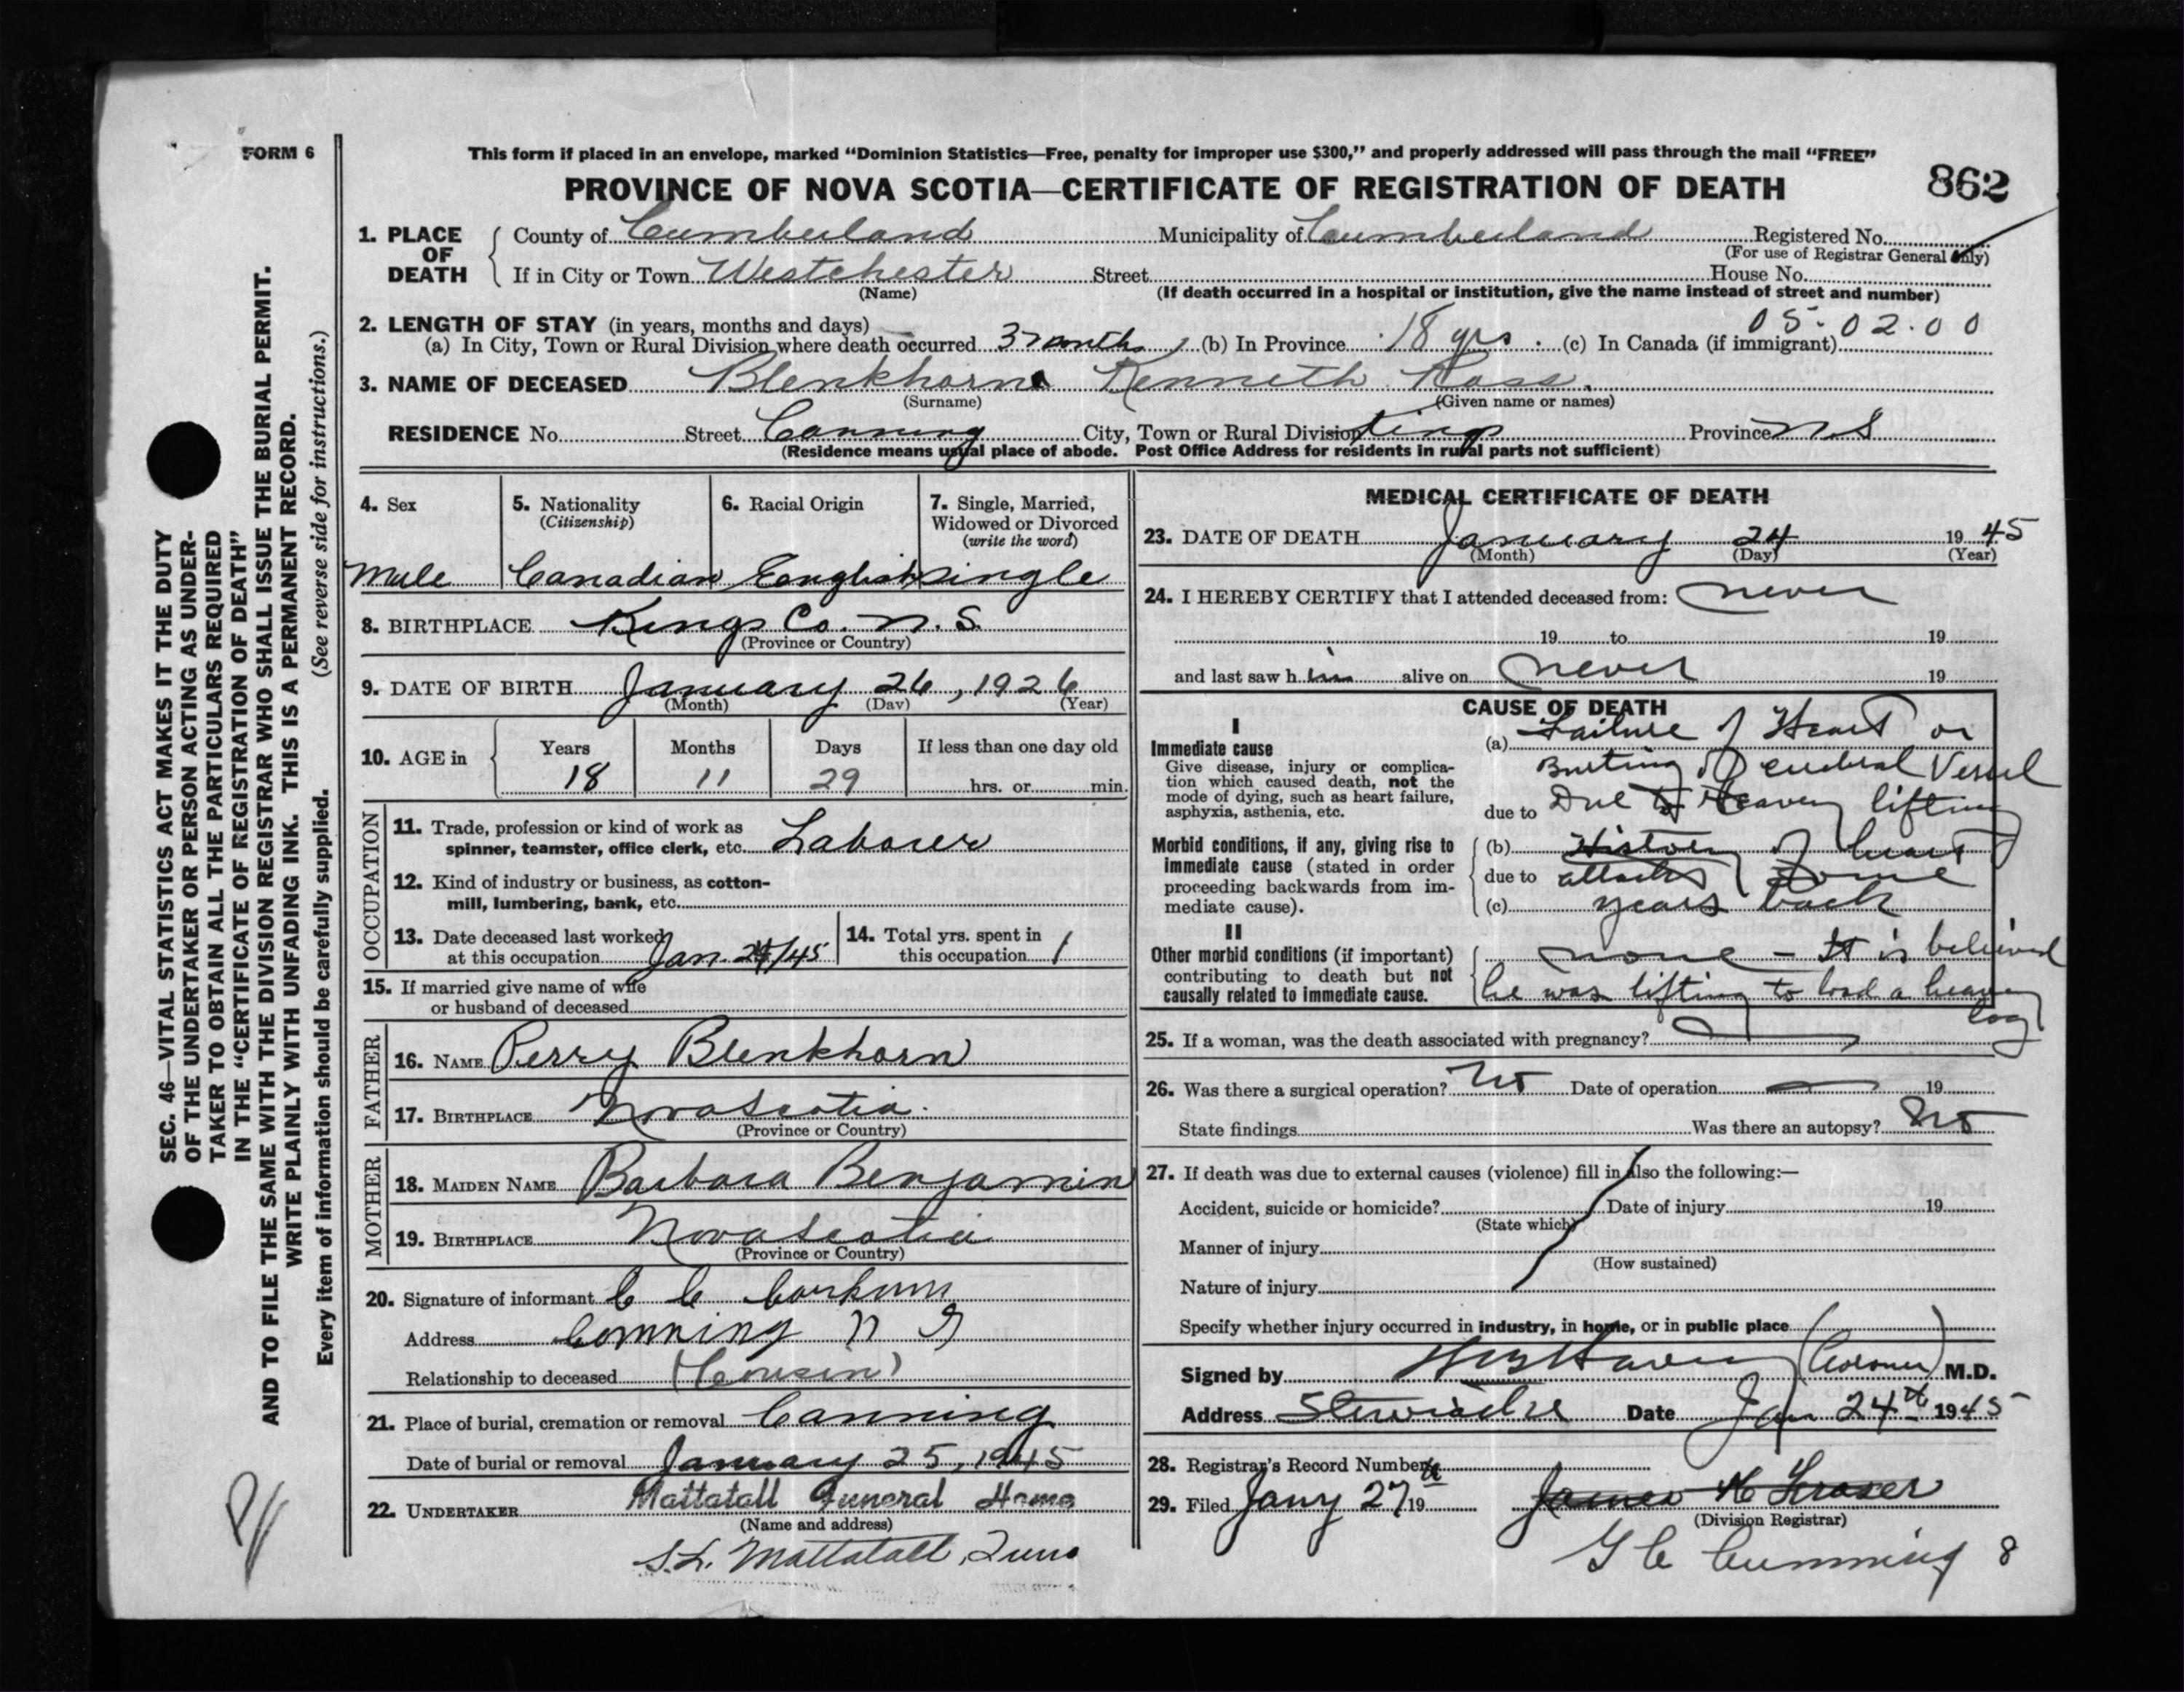 FORM 6
This form if placed in an envelope, marked "Dominion Statistics—Free, penalty for improper use $300," and properly addressed will pass through the mail "FREE"
PROVINCE OF NOVA SCOTIA—CERTIFICATE OF REGISTRATION OF DEATH 862
1. PLACE OF DEATH County of Cumberland Municipality of Cumberland Registered No.
(For use of Registrar General only)
If in City or Town Westchester Street House No.
(Name) (If death occurred in a hospital or institution, give the name instead of street and number)
2. LENGTH OF STAY (in years, months and days) 05.02.00
(a) In City, Town or Rural Division where death occurred 3 months (b) In Province 18 yrs. (c) In Canada (if immigrant)
3. NAME OF DECEASED Blenkhorn Kenneth Ross.
(Surname) (Given name or names)
RESIDENCE No. Street Canning City, Town or Rural Division Kings Province N.S
(Residence means usual place of abode. Post Office Address for residents in rural parts not sufficient)
4. Sex 5. Nationality (Citizenship) 6. Racial Origin 7. Single, Married, Widowed or Divorced (write the word)
Male Canadian English single
8. BIRTHPLACE Kings Co. N.S.
(Province or Country)
9. DATE OF BIRTH January 26, 1926
(Month) (Day) (Year)
10. AGE in Years Months Days If less than one day old
18 11 29 hrs. or min.
OCCUPATION
11. Trade, profession or kind of work as
spinner, teamster, office clerk, etc. Laborer
12. Kind of industry or business, as cotton-
mill, lumbering, bank, etc.
13. Date deceased last worked
at this occupation Jan. 24/45
14. Total yrs. spent in
this occupation 1
15. If married give name of wife
or husband of deceased
FATHER
16. NAME Perry Blenkhorn
17. BIRTHPLACE Nova Scotia.
(Province or Country)
MOTHER
18. MAIDEN NAME Barbara Benjamin
19. BIRTHPLACE Nova Scotia
(Province or Country)
20. Signature of informant C C Corkum
Address Canning N S
Relationship to deceased (Cousin)
21. Place of burial, cremation or removal Canning
Date of burial or removal January 25, 1945
22. UNDERTAKER Mattatall Funeral Home
(Name and address)
S.L. Mattatall,
MEDICAL CERTIFICATE OF DEATH
23. DATE OF DEATH January 24 1945
(Month) (Day) (Year)
24. I HEREBY CERTIFY that I attended deceased from: never
19 to 19
and last saw him alive on never 19
CAUSE OF DEATH
I
Immediate cause
Give disease, injury or complica-
tion which caused death, not the
mode of dying, such as heart failure,
asphyxia, asthenia, etc.
(a) Failure of Heart or
Bursting of cerebral Vessel
due to Due to Heavey lifting
Morbid conditions, if any, giving rise to
immediate cause (stated in order
proceeding backwards from im-
mediate cause).
(b) History of heart
due to attacks some
(c) years back
II
Other morbid conditions (if important)
contributing to death but not
causally related to immediate cause.
none - It is believed
he was lifting to load a heavy
log
25. If a woman, was the death associated with pregnancy?
26. Was there a surgical operation? No Date of operation 19
State findings Was there an autopsy? No
27. If death was due to external causes (violence) fill in also the following:—
Accident, suicide or homicide? Date of injury 19
(State which)
Manner of injury
(How sustained)
Nature of injury
Specify whether injury occurred in industry, in home, or in public place
Signed by (Coroner) M.D.
Address Stewiacke Date Jan 24th 1945
28. Registrar's Record Number
29. Filed Jany 27th 19 James H Fraser
(Division Registrar)
G C Cumming 8
SEC. 46—VITAL STATISTICS ACT MAKES IT THE DUTY
OF THE UNDERTAKER OR PERSON ACTING AS UNDER-
TAKER TO OBTAIN ALL THE PARTICULARS REQUIRED
IN THE "CERTIFICATE OF REGISTRATION OF DEATH"
AND TO FILE THE SAME WITH THE DIVISION REGISTRAR WHO SHALL ISSUE THE BURIAL PERMIT.
WRITE PLAINLY WITH UNFADING INK. THIS IS A PERMANENT RECORD.
Every item of information should be carefully supplied. (See reverse side for instructions.)